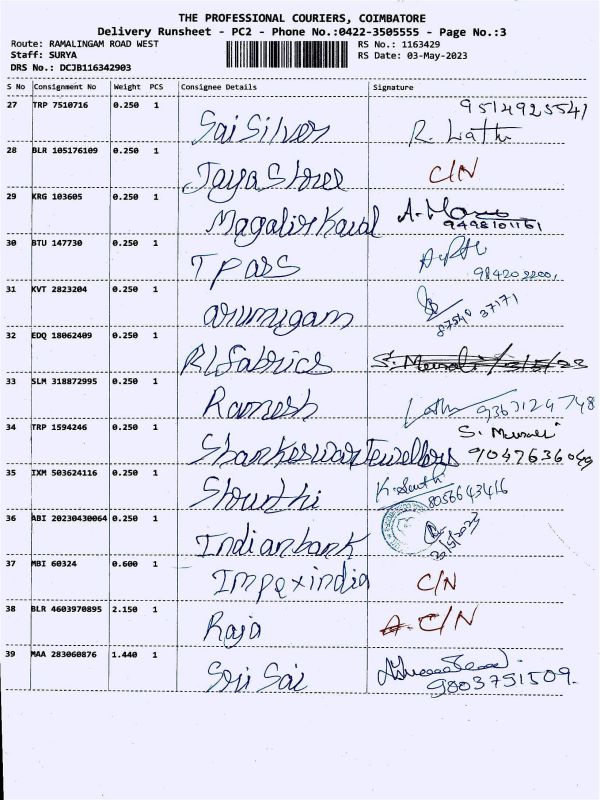 THE PROFESSIONAL COURIERS, COIMBATORE
Delivery Runsheet - PC2 - Phone No.:0422-3505555 - Page No.:3
Route: RAMALINGAM ROAD WEST RS No.: 1163429
Staff: SURYA RS Date: 03-May-2023
DRS No.: DCJB116342903
S No Consignment No Weight PCS Consignee Details Signature
27 TRP 7510716 0.250 1 Sai Silver 9514925541
R. Lathi
28 BLR 105176109 0.250 1 Jaya Stores C/N
29 KRG 103605 0.250 1 Magalir Kaval 9498101161
30 BTU 147730 0.250 1 T Pars
31 KVT 2823204 0.250 1 arumugam 87540 37171
32 EDQ 18062409 0.250 1 RL fabrics S. Murali
33 SLM 318872995 0.250 1 Ramesh 9363124748
34 TRP 1594246 0.250 1 Shankeswar Jewellery S. Murali
9047636049
35 IXM 503624116 0.250 1 Shruthi 8056643416
36 ABI 20230430064 0.250 1 Indian bank
37 MBI 60324 0.600 1 Impex india C/N
38 BLR 4603970895 2.150 1 Raja C/N
39 MAA 283060876 1.440 1 Sri Sai 9803751509.